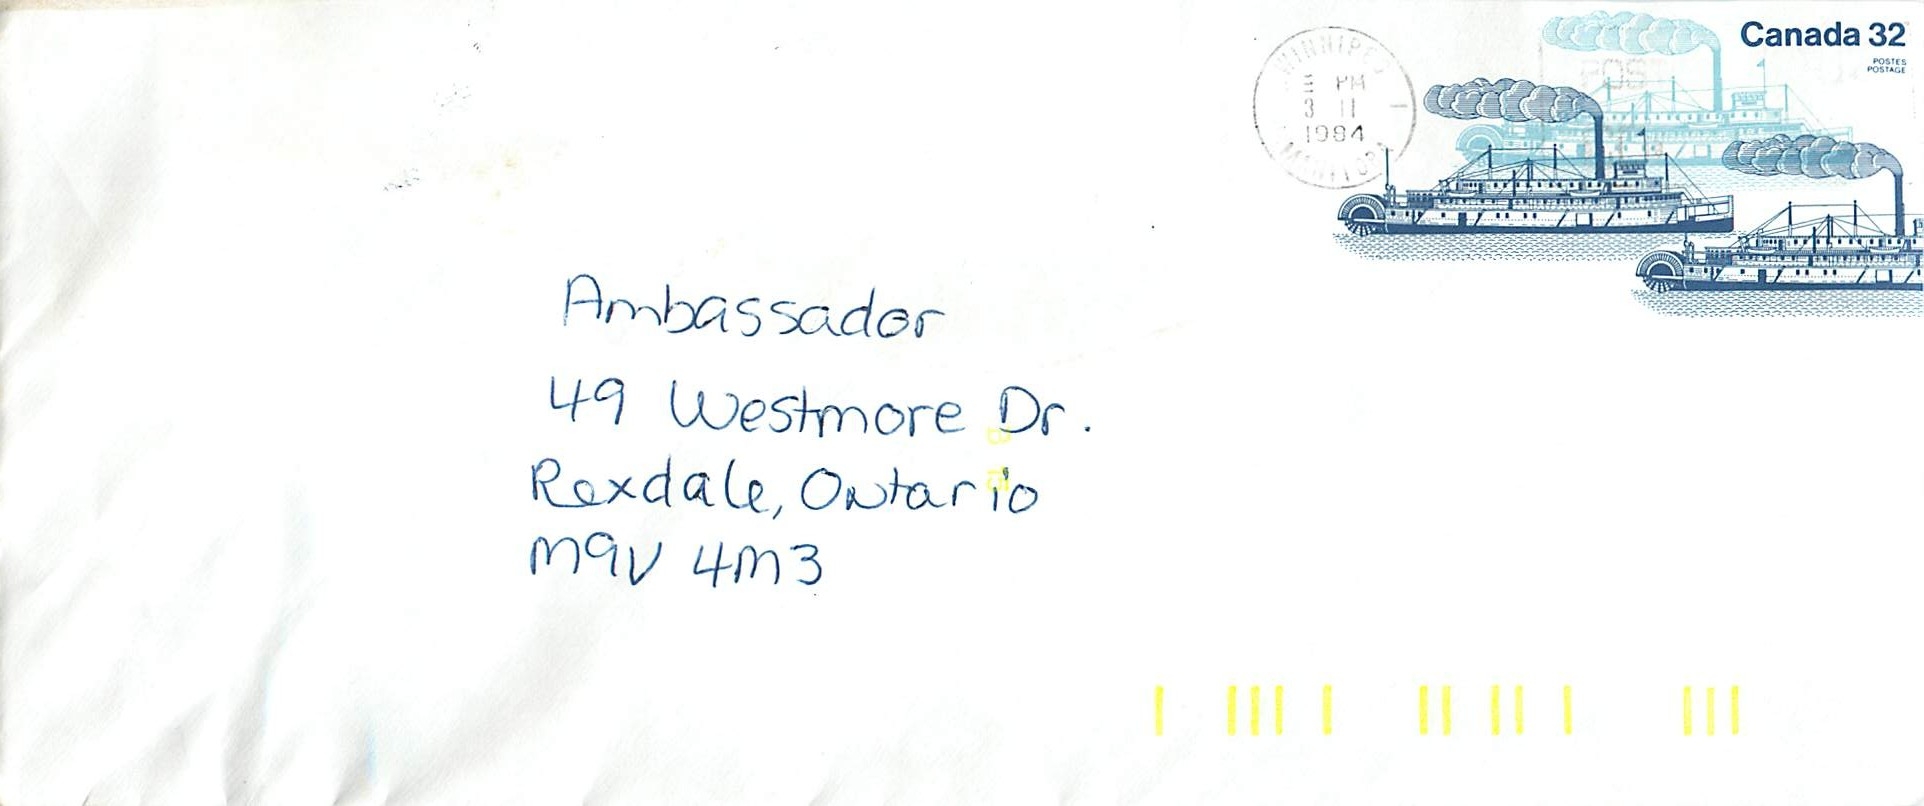 Canada 32
POSTES
POSTAGE
WINNIPEG
PM
3 II
1984
MANITOBA
Ambassador
49 Westmore Dr.
Rexdale, Ontario
M9V 4M3